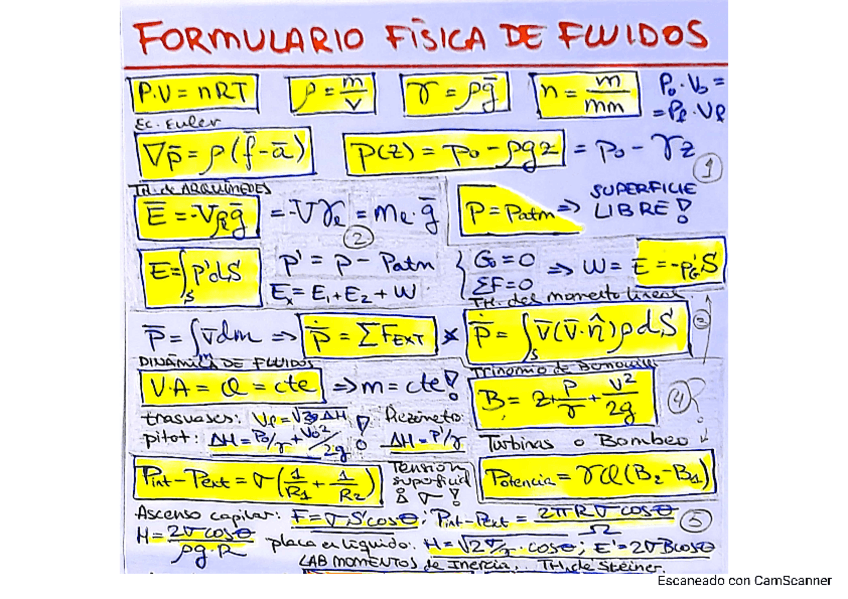 FORMULARIO FÍSICA DE FLUIDOS
P·V = nRT
ρ = m/V
γ = ρḡ
n = m/mm
P₀·V₀ = = Pℓ·Vℓ
Ec. Euler
∇p̄ = ρ(f̄-ā)
p(z) = p₀ - ρgz = p₀ - γz
1
TH. de ARQUÍMEDES
Ē = -Vρℓḡ = -Vγℓ = mℓ·ḡ
2
P = Patm => SUPERFICIE LIBRE!
E = ∫s p'dS
p' = p - Patm
Ex = E₁+E₂+W
{ G₀=0 ΣF=0 => W = E = -p'G S
TH. del momento lineal
p̄ = ∫m v̄dm => ṗ = ΣFEXT * ṗ = ∫s v̄(v̄·n̂)ρdS
DINÁMICA DE FLUIDOS
V·A = Q = cte => m = cte!
Trinomio de Bernoulli
B = z+P/γ+V²/2g
4
trasvases: Vℓ=√2g ΔH
Piezómetro: ΔH = P'/γ
pitot: ΔH = P₀/γ + V₀²/2g
Turbinas o Bombeo
Potencia = γQ(B₂-B₁)
Pint-Pext = σ(1/R₁ + 1/R₂)
Tensión superficial σ!
Ascenso capilar: F = σS'cosθ; Pint-Pext = 2πRσcosθ/Ω
5
H = 2σ cosθ/ρg·R
placa en líquido: H = √2σ/γ · cosθ; E' = 2σBcosθ
LAB MOMENTOS de Inercia... TH. de Steiner.
Escaneado con CamScanner